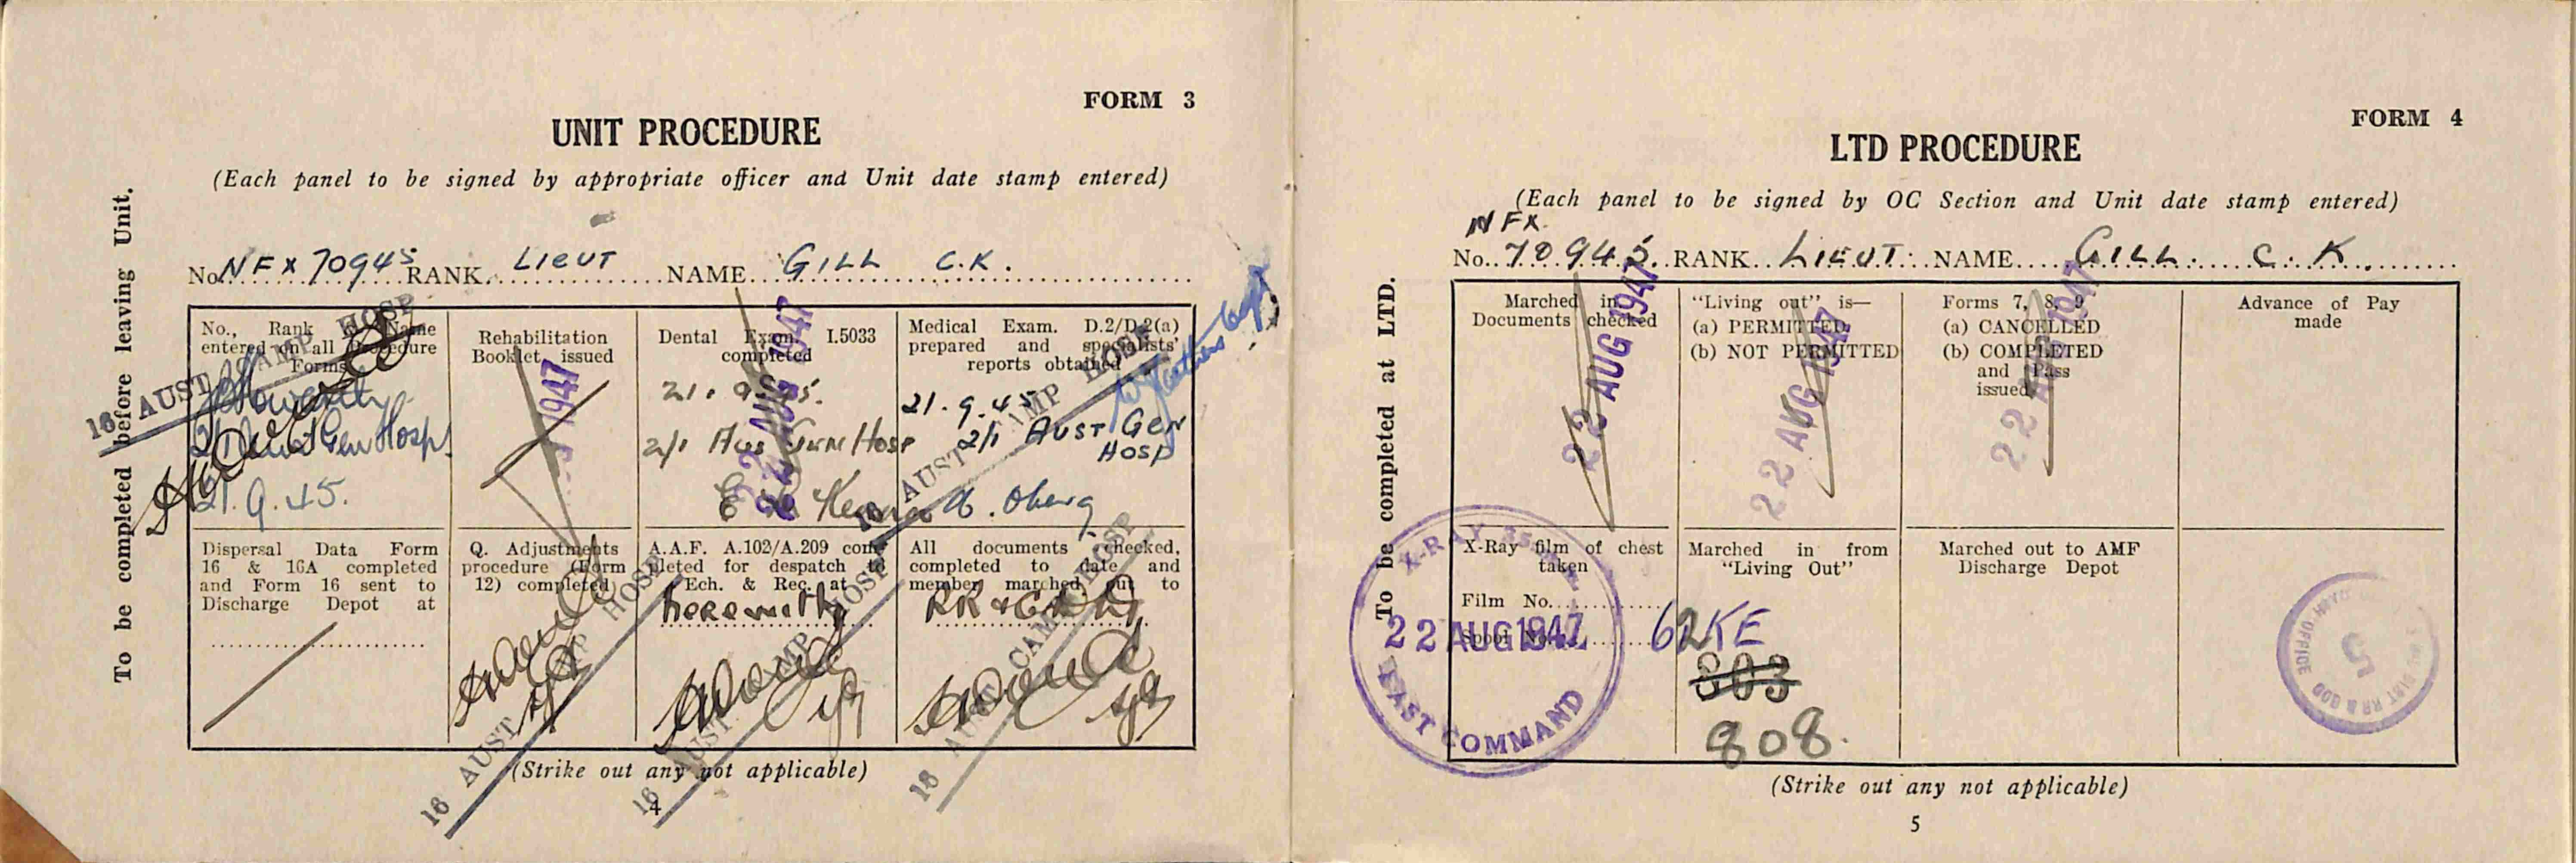 FORM 3
UNIT PROCEDURE
(Each panel to be signed by appropriate officer and Unit date stamp entered)
To be completed before leaving Unit.
No. NFX 70945 RANK. LIEUT NAME. GILL C.K.
No., Rank & Name
entered on all Procedure
Forms
16 AUST CAMP HOSP
2/1 Aust Gen Hosp.
21.9.45.
Rehabilitation
Booklet issued
1947
Dental Exam. I.5033
completed
21.9.45.
2/1 Aus Gen Hosp
22 AUG 1947
Medical Exam. D.2/D.2(a)
prepared and specialists'
reports obtained
21.9.45
2/1 AUST GEN
HOSP
16 AUST CAMP HOSP
Dispersal Data Form
16 & 16A completed
and Form 16 sent to
Discharge Depot at
Q. Adjustments
procedure (Form
12) completed
16 AUST CAMP HOSP
A.A.F. A.102/A.209 com-
pleted for despatch to
Ech. & Rec. at
herewith
16 AUST CAMP HOSP
All documents checked,
completed to date and
member marched out to
16 AUST CAMP HOSP
(Strike out any not applicable)
4
FORM 4
LTD PROCEDURE
(Each panel to be signed by OC Section and Unit date stamp entered)
To be completed at LTD.
NFX
No. 70945. RANK. LIEUT. NAME. GILL. C. K.
Marched in
Documents checked
22 AUG 1947
"Living out" is—
(a) PERMITTED
(b) NOT PERMITTED
22 AUG 1947
Forms 7, 8, 9
(a) CANCELLED
(b) COMPLETED
and Pass
issued
22 AUG 1947
Advance of Pay
made
X-Ray film of chest
taken
Film No.
Spool No.
X-RAY
22 AUG 1947
EAST COMMAND
62KE
Marched in from
"Living Out"
803
808.
Marched out to AMF
Discharge Depot
5
(Strike out any not applicable)
5